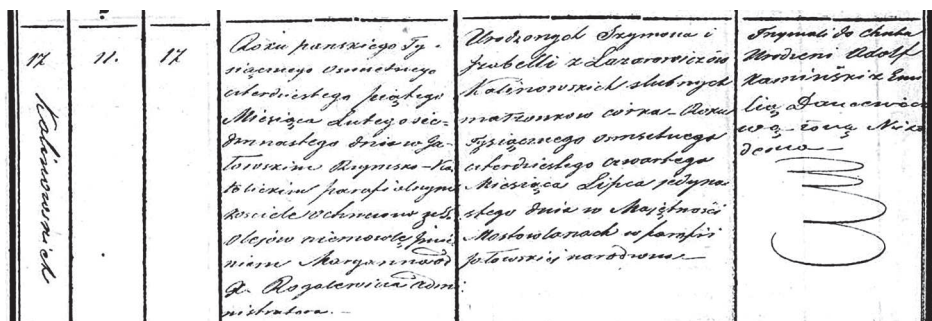 17
11.
17
Kalinowskich
Roku pańskiego Ty-
siącznego osmsetnego
czterdziestego piątego
Miesiąca Lutego siede-
mnastego dnia w Ja-
łowskim Rzymsko-Ka-
tolickim parafialnym
kościele ochrzczono z SS.
Olejów niemowlę imie-
niem Maryanna od
X. Rogalewicza admi-
nistratora.—
Urodzonych Szymona i
Izabelli z Łazarowiczów
Kalinowskich ślubnych
małżonków córka- Roku
tysiącznego osmsetnego
czterdziestego czwartego
Miesiąca Lipca jedyna-
stego dnia w Majętności
Mostowlanach w parafii
jałowskiej narodzona—
Trzymali do chrztu
Urodzeni Adolf
Kamiński z Emi-
lią
wą żoną Niko
dema—